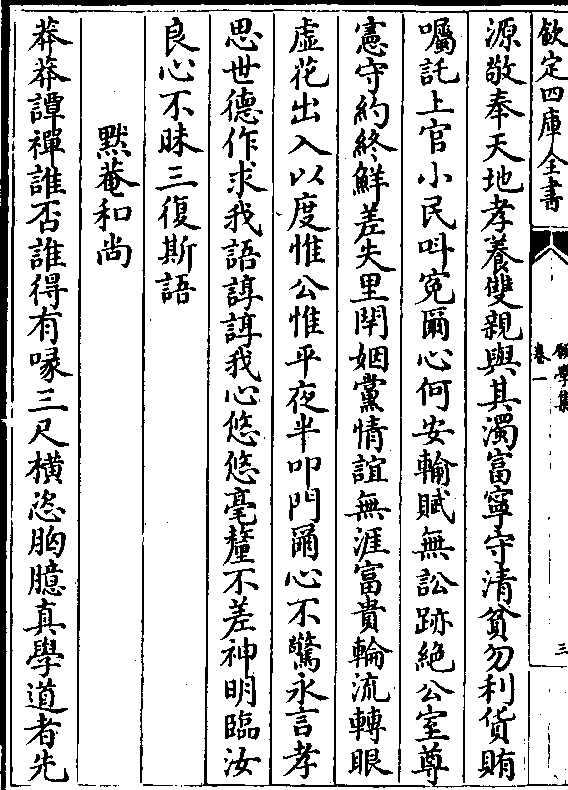 欽定四庫全書
卷一
三
源敬奉天地孝養雙親與其濁富寧守清貧勿利貨賄
囑託上官小民呌寃爾心何安輸賦無訟跡絶公室尊
憲守約終鮮差失里閈姻黨情誼無涯富貴輪流轉眼
虛花出入以度惟公惟平夜半叩門爾心不驚永言孝
思世德作求我語諄諄我心悠悠毫釐不差神明臨汝
良心不昧三復斯語
黙菴和尚
莽莽譚禪誰否誰得有喙三尺橫恣胸臆真學道者先